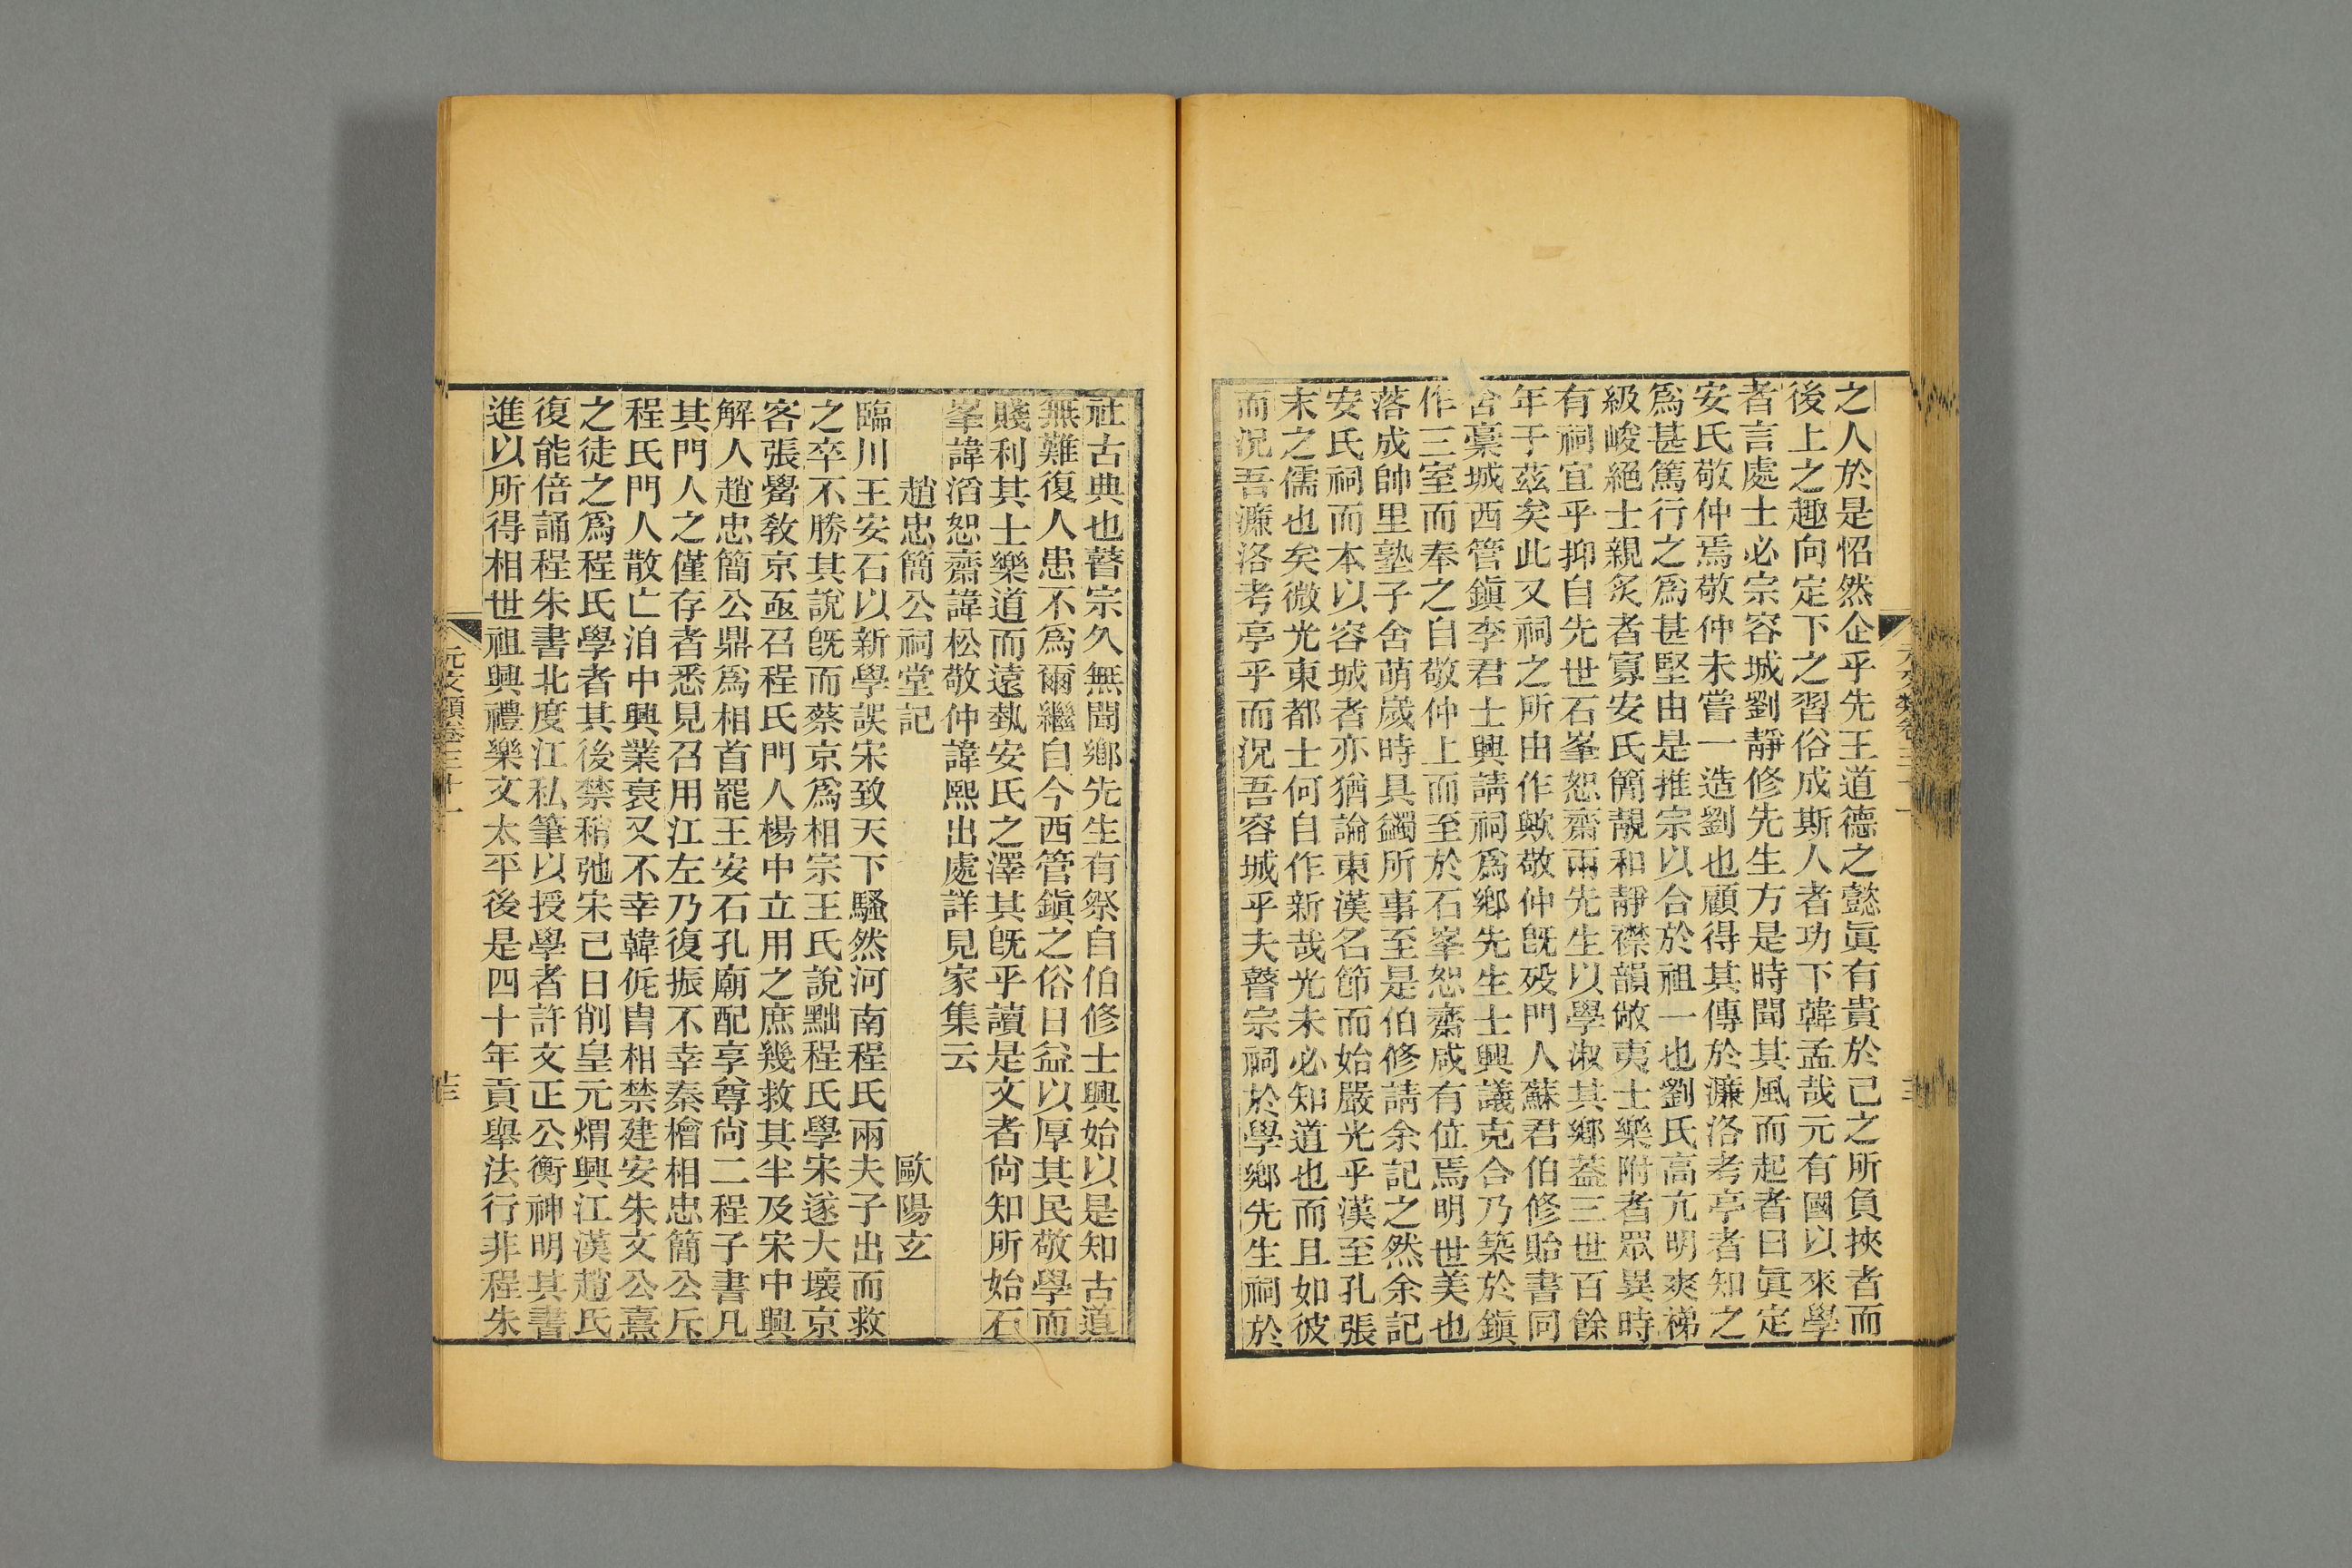 之人於是怊然企乎先王道德之懿眞有貴於己之所負挾者而
後上之趣向定下之習俗成斯人者功下韓孟哉元有國以來學
者言處士必宗容城劉靜修先生方是時聞其風而起者曰眞定
安氏敬仲焉敬仲未嘗一造劉也顧得其傳於濂洛考亭者知之
爲甚篤行之爲甚堅由是推宗以合於祖一也劉氏高亢明爽梯
級峻絕士親炙者寡安氏簡靚和靜襟韻敞夷士樂附者眾異時
有祠宜乎抑自先世石峯恕齋兩先生以學淑其鄉葢三世百餘
年于茲矣此又祠之所由作歟敬仲旣歿門人蘇君伯修貽書同
舍藁城西管鎭李君士興請祠爲鄉先生士興議克合乃築於鎭
作三室而奉之自敬仲上而至於石峯恕齋咸有位焉明世美也
落成帥里塾子舍萌歲時具蠲所事至是伯修請余記之然余記
安氏祠而本以容城者亦猶論東漢名節而始嚴光乎漢至孔張
末之儒也矣微光東都士何自作新哉光未必知道也而且如彼
而況吾濂洛考亭乎而況吾容城乎夫瞽宗祠於學鄉先生祠於
社古典也瞽宗久無聞鄉先生有祭自伯修士興始以是知古道
無難復人患不爲爾繼自今西管鎭之俗日益以厚其民敬學而
賤利其士樂道而遠埶安氏之澤其旣乎讀是文者尙知所始石
峯諱滔恕齋諱松敬仲諱熙出處詳見家集云
趙忠簡公祠堂記　歐陽玄
臨川王安石以新學誤宋致天下騷然河南程氏兩夫子出而救
之卒不勝其說旣而蔡京爲相宗王氏說黜程氏學宋遂大壞京
客張觷敎京亟召程氏門人楊中立用之庶幾救其半及宋中興
解人趙忠簡公鼎爲相首罷王安石孔廟配享尊尙二程子書凡
其門人之僅存者悉見召用江左乃復振不幸秦檜相忠簡公斥
程氏門人散亡洎中興業衰又不幸韓侂胄相禁建安朱文公熹
之徒之爲程氏學者其後禁稍弛宋己日削皇元煟興江漢趙氏
復能倍誦程朱書北度江私筆以授學者許文正公衡神明其書
進以所得相世祖興禮樂文太平後是四十年貢舉法行非程朱
元文類卷三十一